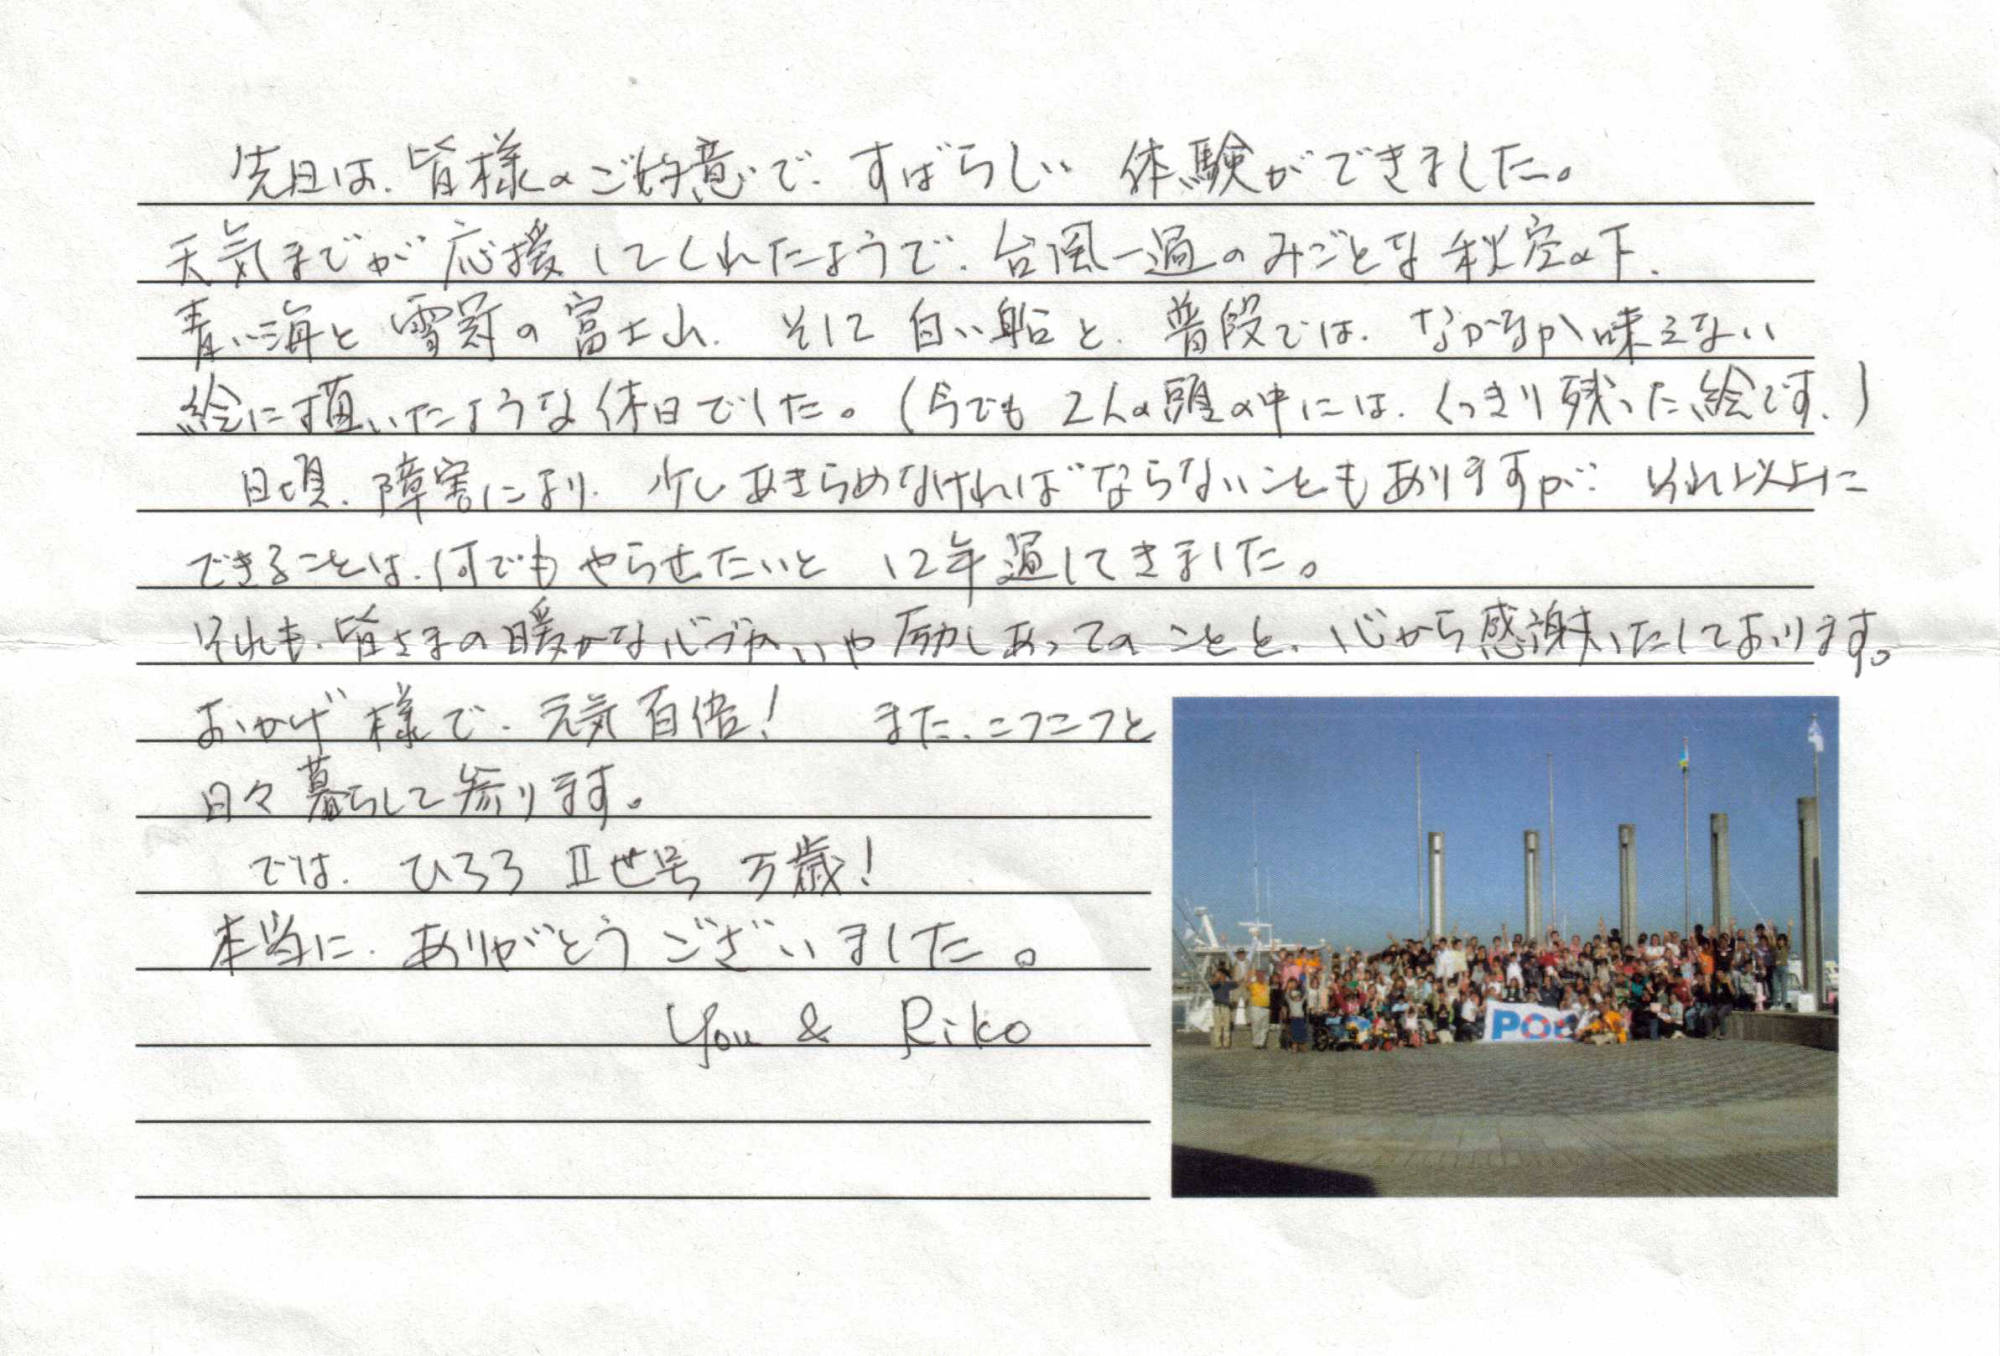 先日は、皆様のご好意で、すばらしい 体験ができました。
天気までが応援してくれたようで、台風一過のみごとな秋空の下、
青い海と雪冠の富士山、そして白い船と、普段では、なかなか味えない
絵に描いたような休日でした。(今でも2人の頭の中には、くっきり残った絵です。)
日頃、障害により、少しあきらめなければならないこともありますが、それ以上に
できることは、何でもやらせたいと 12年過してきました。
それも、皆さまの暖かな心づかいや励しあってのことと、心から感謝いたしております。
おかげ様で、元気百倍! また、ニコニコと
日々暮らして参ります。
では、ひろろⅡ世号 万歳!
本当に、ありがとうございました。
You & Riko
PO